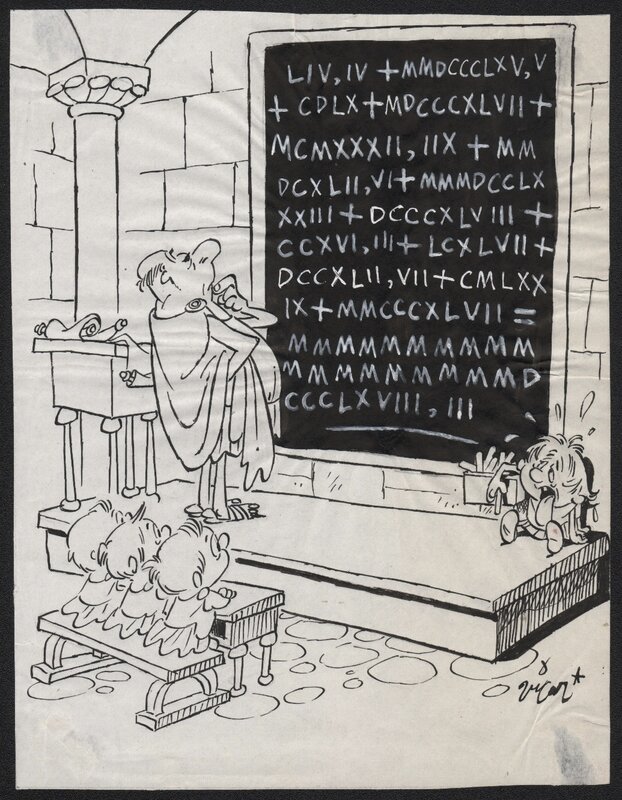 LIV, IV + MMDCCCLXV, V
+ CDLX + MDCCCXLVII +
MCMXXXII, IIX + MM
DCXLII, VI + MMMDCCLX
XXIII + DCCCXLVIII +
CCXVI, III + LCXLVII +
DCCXLII, VII + CMLXX
IX + MMCCCXLVII =
MMMMMMMMMM
MMMMMMMMMMD
CCCLXVIII, III